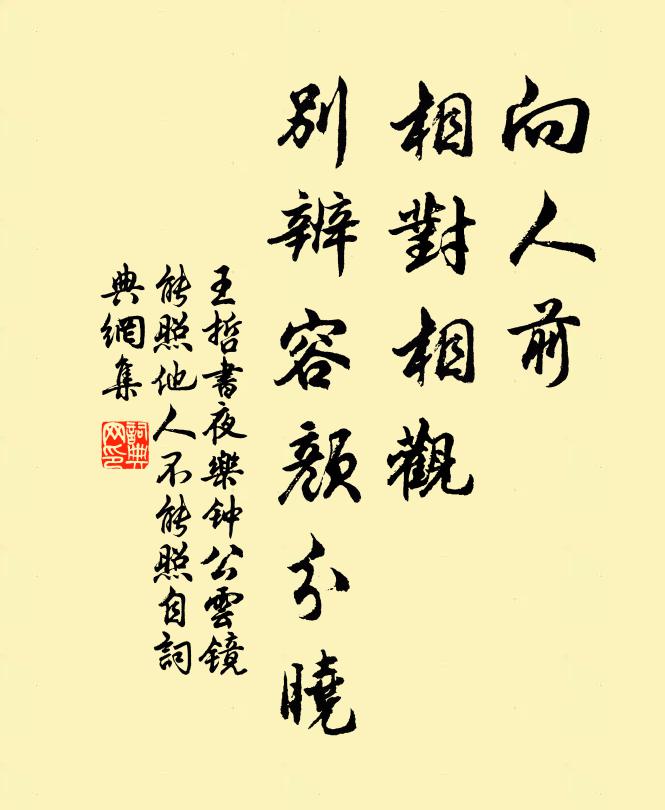 向人前
相對相觀
別辨容顏分曉
王哲書夜樂钟公雲鏡
能照他人不能照自詞
典網集
詞典
网印